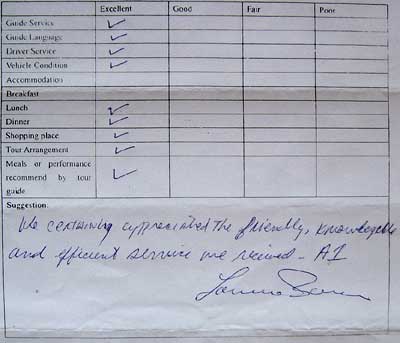 Excellent Good Fair Poor
Guide Service ✓
Guide Language ✓
Driver Service ✓
Vehicle Condition ✓
Accommodation
Breakfast
Lunch ✓
Dinner ✓
Shopping place ✓
Tour Arrangement ✓
Meals or performance
recommend by tour ✓
guide
Suggestion:
We certainly appreciated the friendly, knowledgeable
and efficient service we received - A1